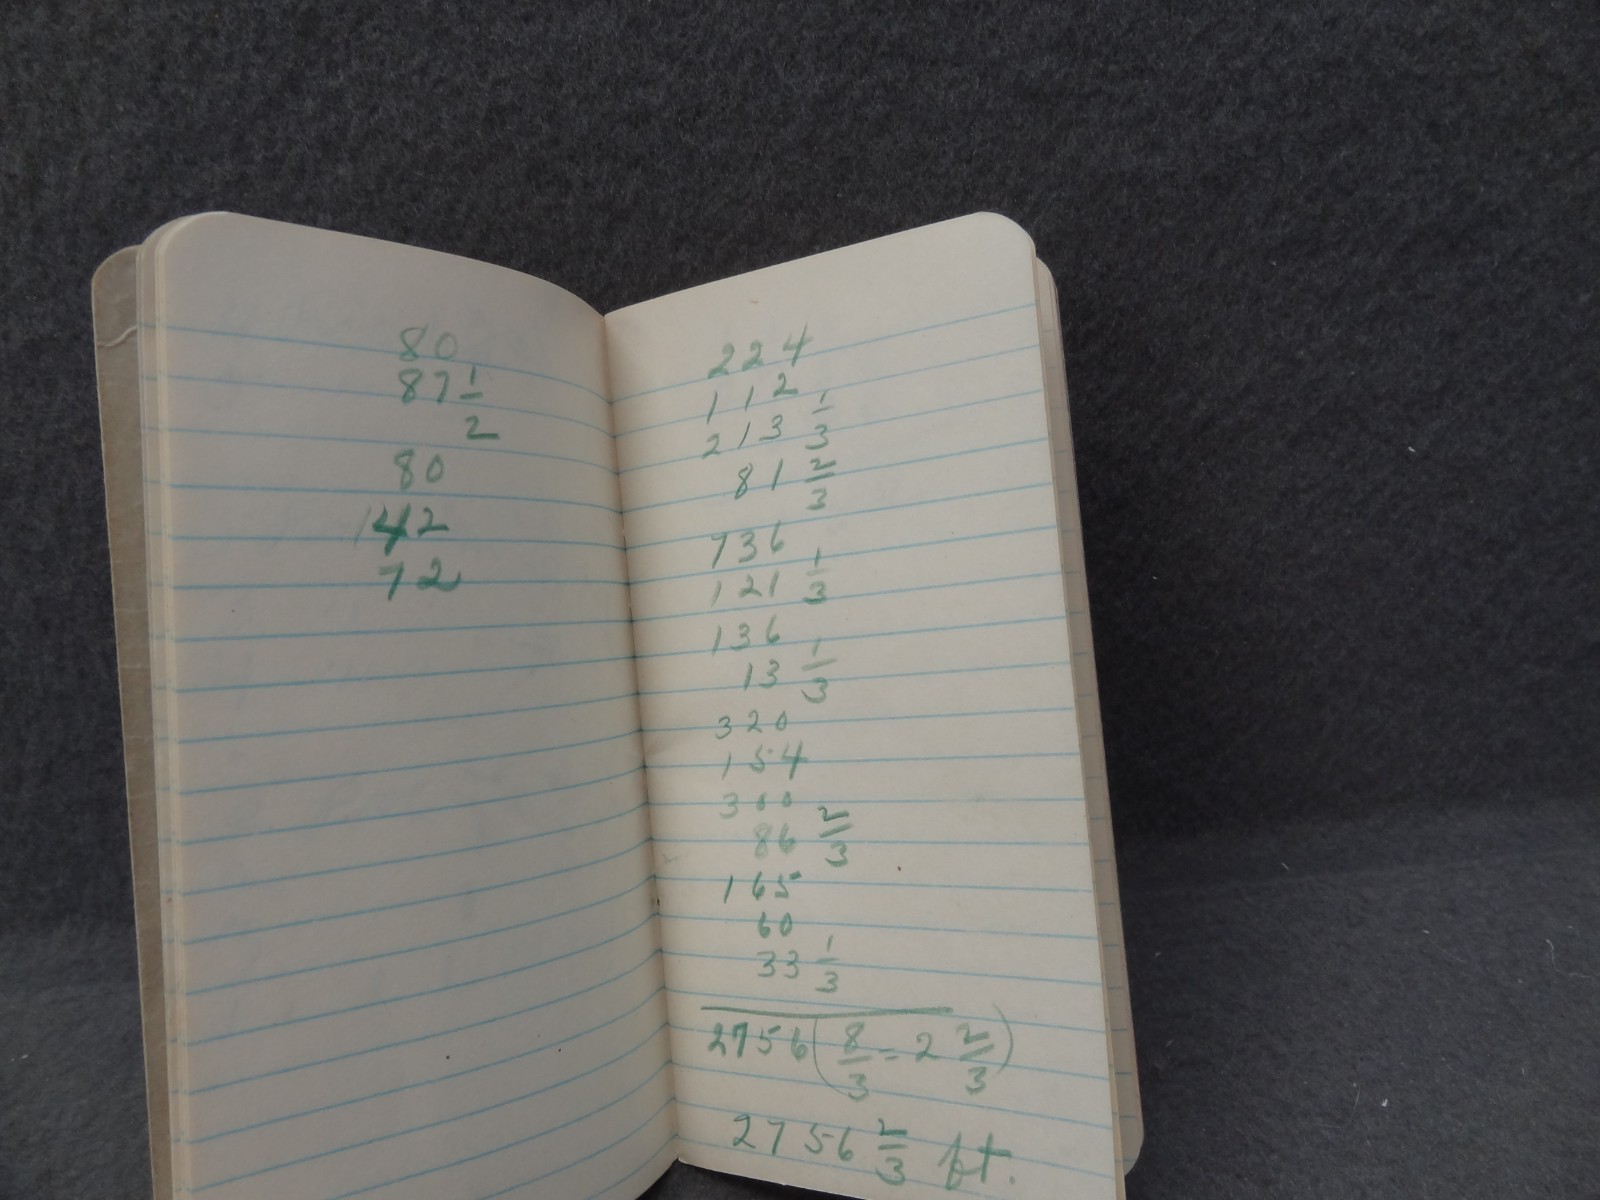 80
87 1/2
80
142
72
224
112
213 1/3
81 2/3
736
121 1/3
136
13 1/3
320
154
300
86 2/3
165
60
33 1/3
2756 (8/3 = 2 2/3)
2756 2/3 ft.